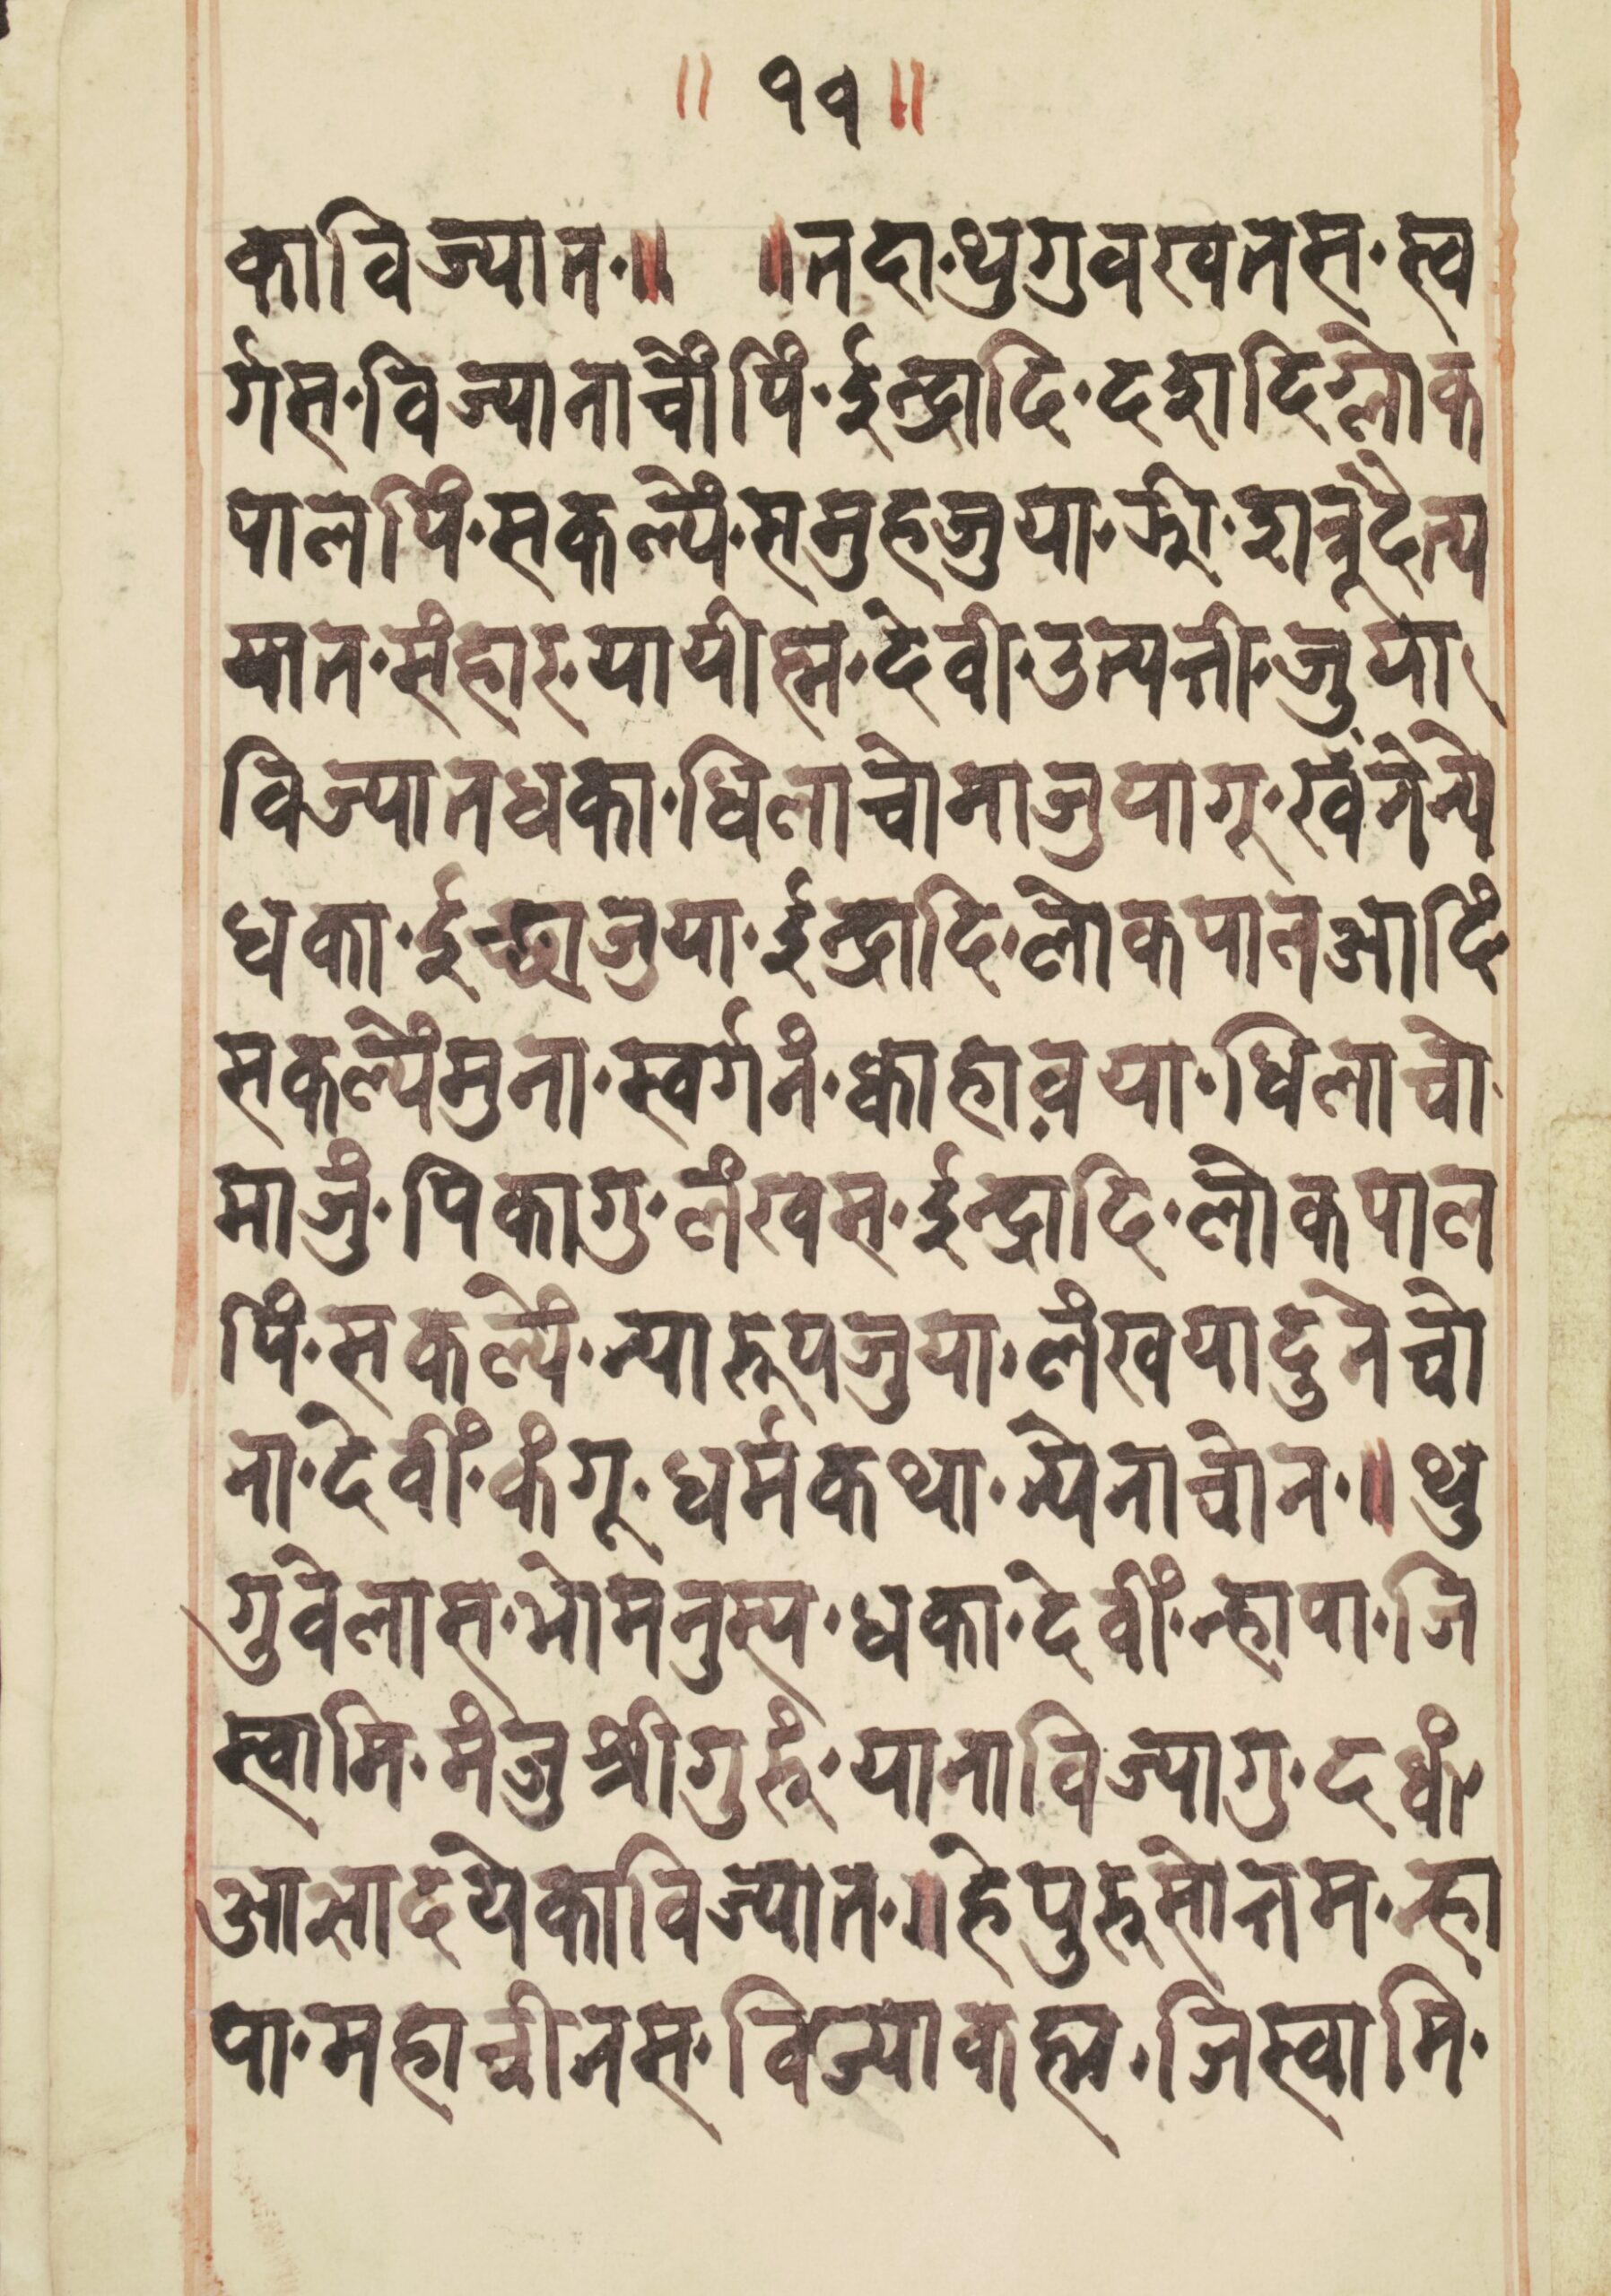 ॥ ११ ॥
काविज्यात·॥ ॥तदा·थुगुवखतस·स्व
र्गस·विज्यानाचोंपिं·ईन्द्रादि·दशदिग्लोक
पालपिं·सकल्यें·समुहजुया·झी·शत्रूदैत्य
यात·संहारयायीह्म·देवी·उत्पत्ती·जुया
विज्यातधका·धिलाचोमाजुयागू·खँनेन्ये
धका·ईच्छाजुया·ईन्द्रादि·लोकपालआदिं
सकल्येंमुना·स्वर्गनं·क्वाहावया·धिलाचो
माजुं·पिकागु·लंखस·ईन्द्रादि·लोकपाल
पिं·सकल्यें·न्यारूपजुया·लंखयादुनेचो
ना·देवीं·कंगू·धर्मकथा·न्येनाचोन·॥थु
गुवेलास·भोमनुस्य·धका·देवीं·न्हापा·जि
स्वामि·मंजुश्रीगुरुं·यानाविज्यागु·दधों
आलादयेकाविज्यात·॥हेपुरूसोत्तम·न्हा
पा·महाचीनस·विज्याकह्म·जिस्वामि·